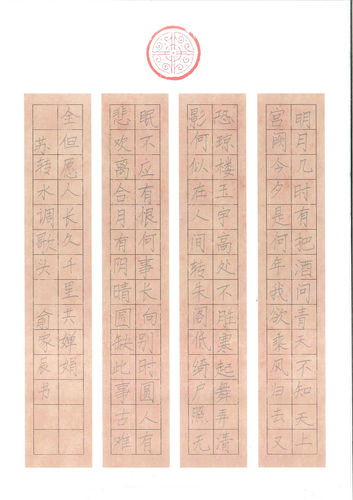 明月几时有把酒问青天不知天上
宫阙今夕是何年我欲乘风归去又
恐琼楼玉宇高处不胜寒起舞弄清
影何似在人间转朱阁低绮户照无
眠不应有恨何事长向别时圆人有
悲欢离合月有阴晴圆缺此事古难
全但愿人长久千里共婵娟
苏轼水调歌头 俞家辰书